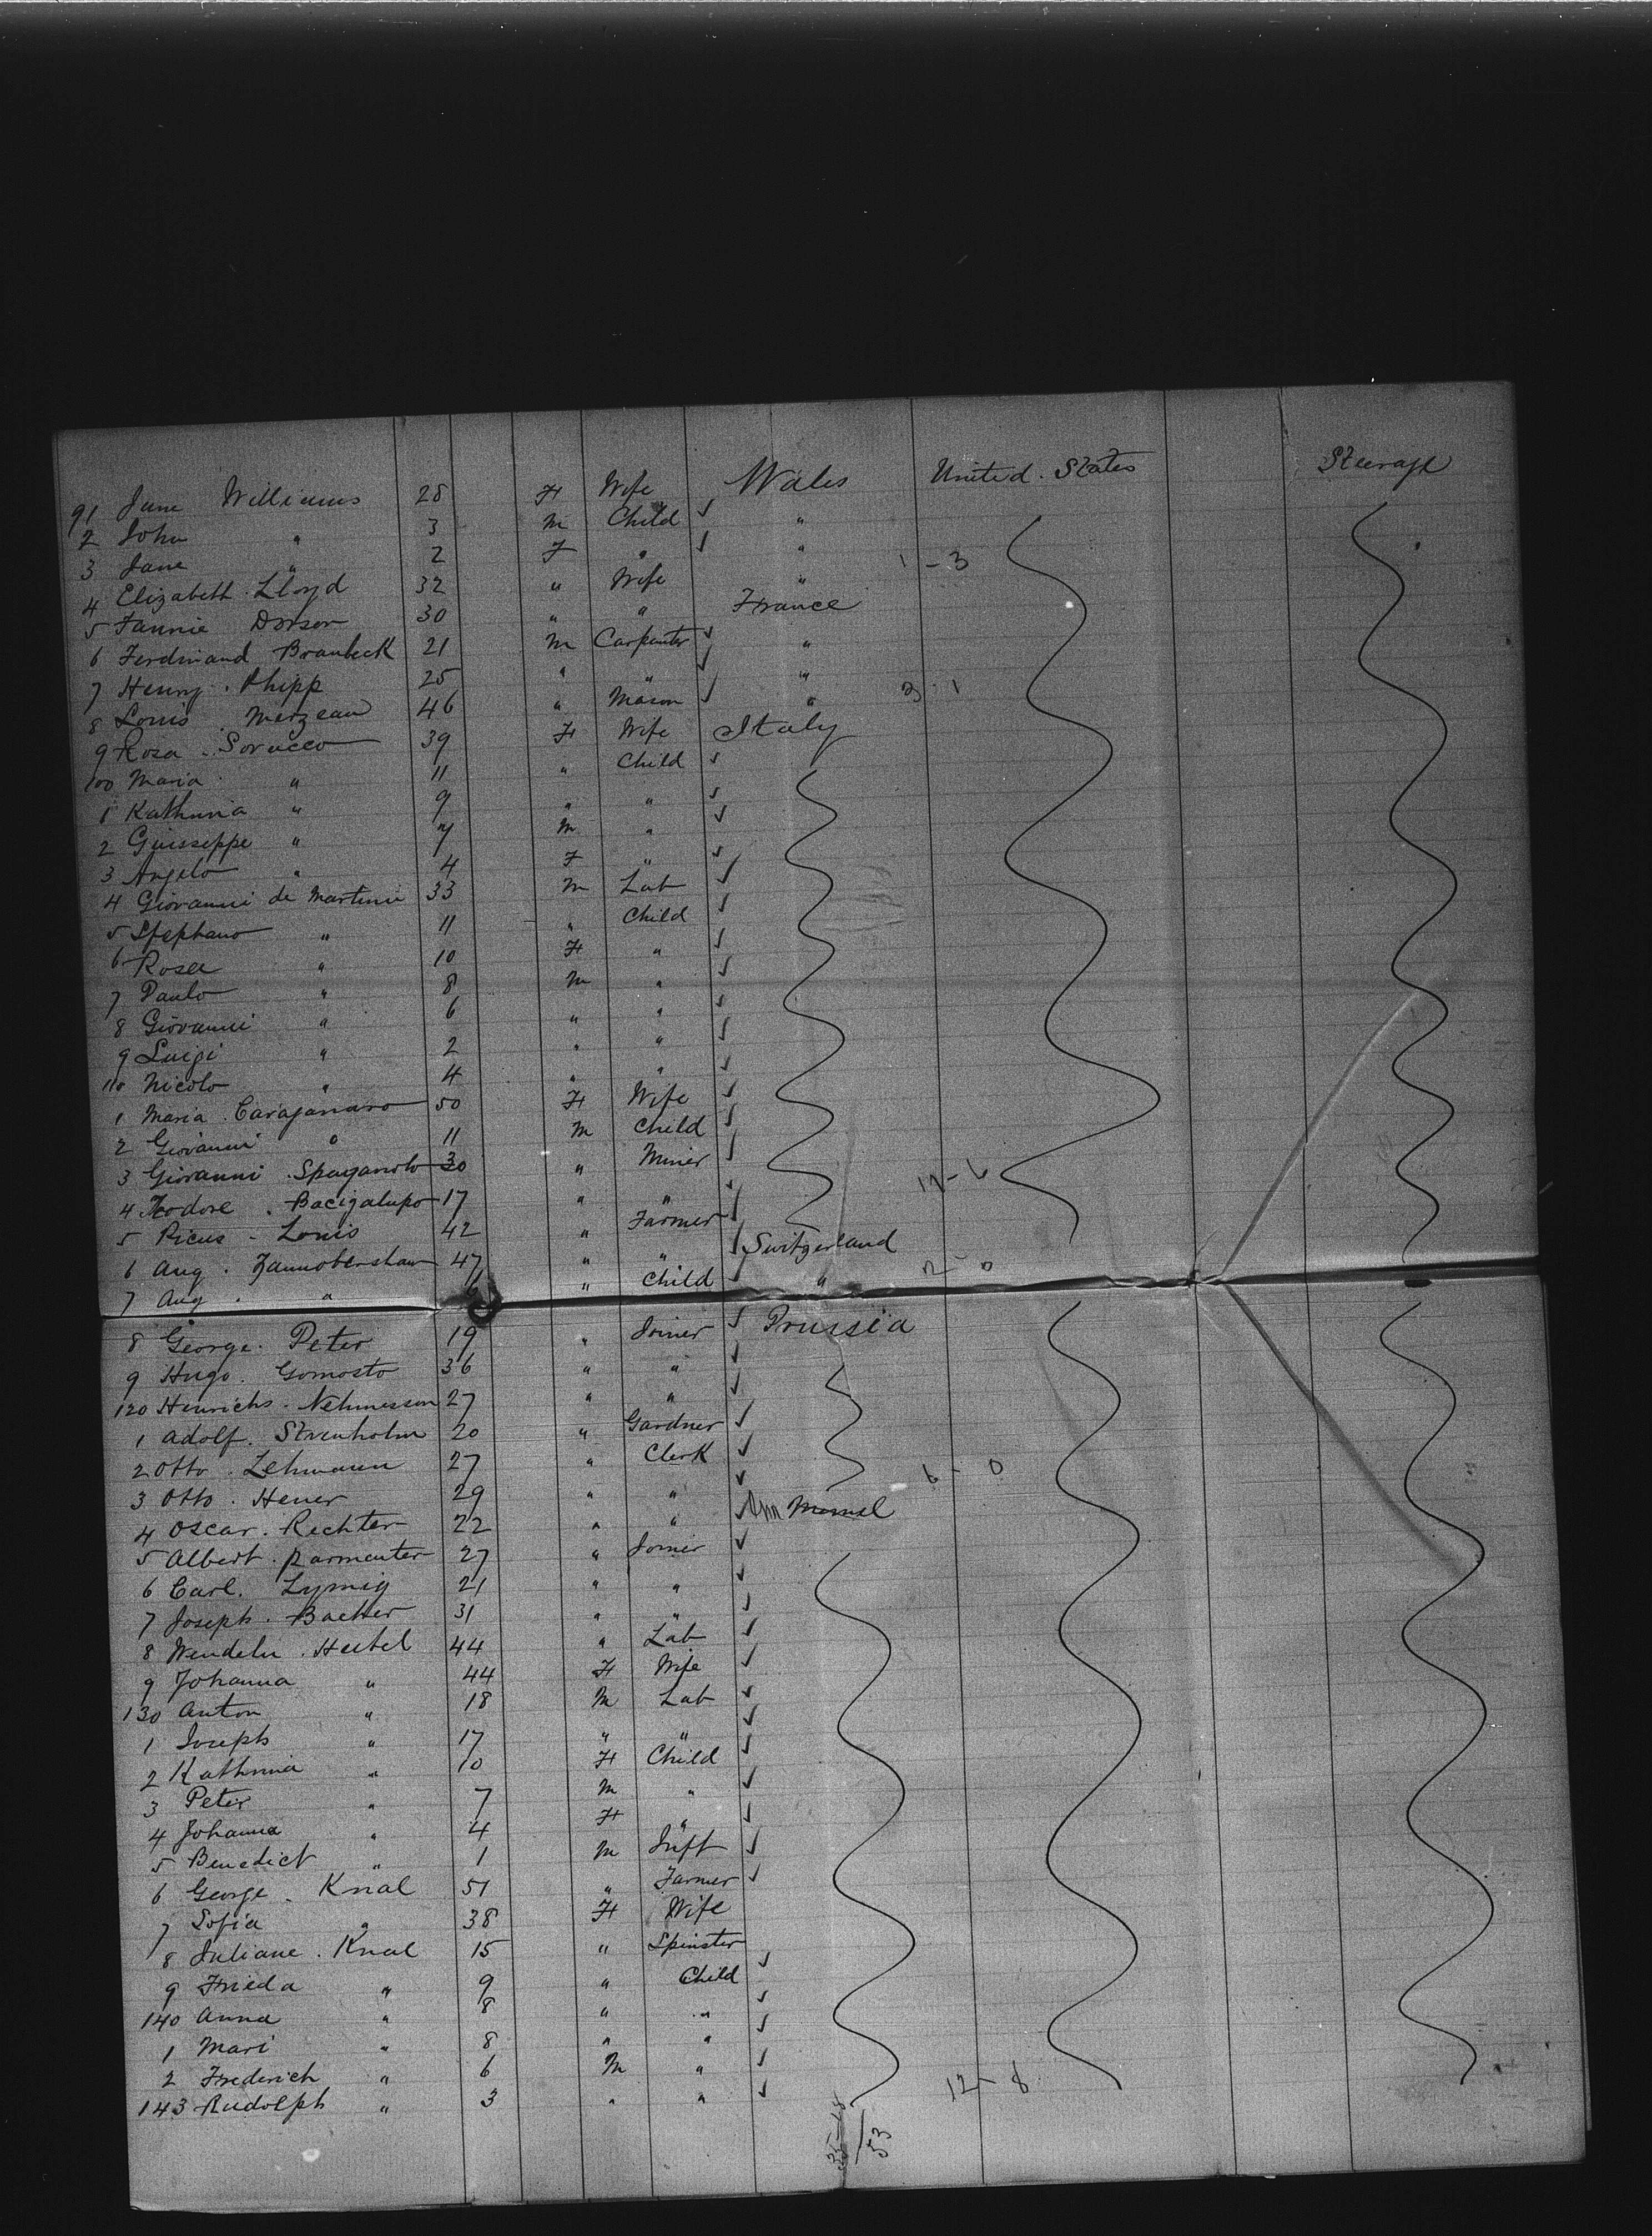 91 Jane Williams 28 F Wife Wales United States Steerage
2 John " 3 m Child "
3 Jane " 2 F " "
4 Elizabeth Lloyd 32 " Wife " 1-3
5 Fannie Dorson 30 " " France
6 Ferdinand Braubeck 21 m Carpenter "
7 Henry Phipp 25 " " "
8 Louis Merzeau 46 " Mason " 3-1
9 Rosa Soracco 39 F Wife Italy
100 Maria " 11 " Child
1 Kathrina " 9 " "
2 Guisseppe " 7 m "
3 Angelo " 4 F "
4 Giovanni de Martinie 33 m Lab
5 Stephano " 11 " Child
6 Rosa " 10 F "
7 Paulo " 8 m "
8 Giovanni " 6 " "
9 Luigi " 2 " "
110 Nicolo " 4 " "
1 Maria 50 F Wife
2 Giovanni " 11 m Child
3 Giovanni Spaganolo 30 " Miner
4 Teodore Bacigalupo 17 " "
5 Picus Louis 42 " Farmer
6 Aug. 47 " " Switzerland
7 Aug " 6 " Child " 2-0
8 George Peter 19 " Joiner Prussia
9 Hugo Gomosto 36 " "
120 Henrichs Nehmesson 27 " "
1 Adolf Strenholm 20 " Gardner
2 Otto Lehmann 27 " Clerk
3 Otto Hener 29 " " 6-0
4 Oscar Rechter 22 " "
5 Albert Parmenter 27 " Joiner
6 Carl Lymig 21 " "
7 Joseph Backer 31 " "
8 Wendeln Heibel 44 " Lab
9 Johanna " 44 F Wife
130 Anton " 18 m Lab
1 Joseph " 17 " "
2 Kathrina " 10 F Child
3 Peter " 7 m "
4 Johanna " 4 F "
5 Benedict " 1 m Inft
6 George Knal 51 " Farmer
7 Sofia " 38 F Wife
8 Juliane Knal 15 " Spinster
9 Frieda " 9 " Child
140 Anna " 8 " "
1 Mari " 8 " "
2 Frederich " 6 M "
143 Rudolph " 3 " " 12-8
35-18
53